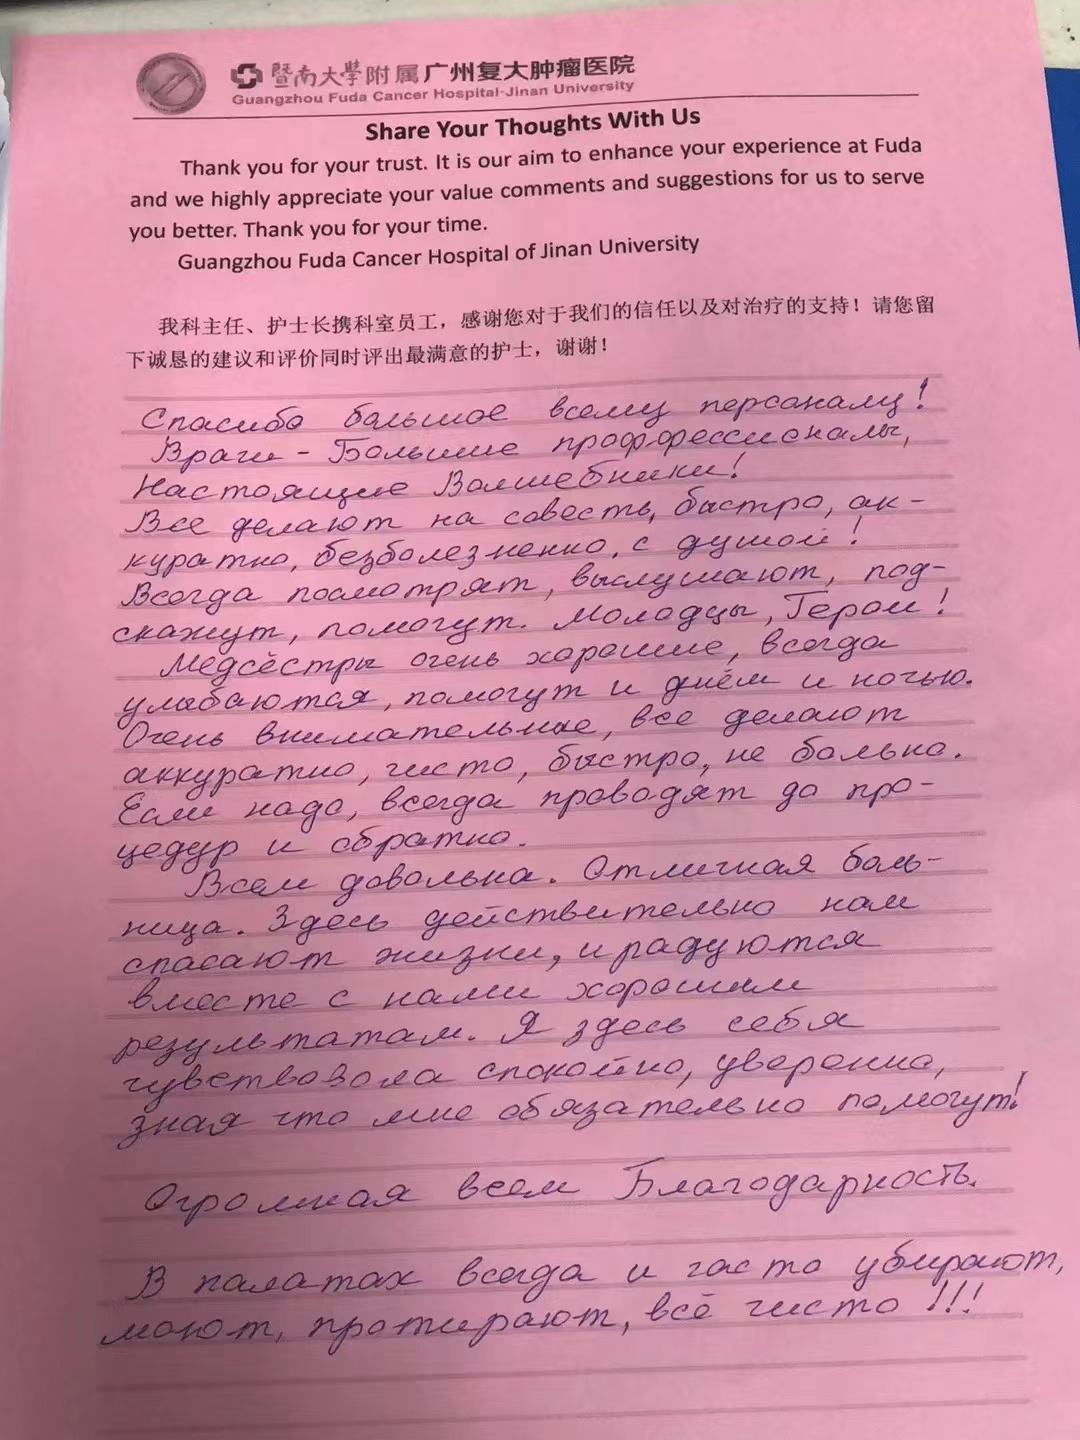 暨南大學附属广州复大肿瘤医院
Guangzhou Fuda Cancer Hospital·Jinan University
Share Your Thoughts With Us
Thank you for your trust. It is our aim to enhance your experience at Fuda
and we highly appreciate your value comments and suggestions for us to serve
you better. Thank you for your time.
Guangzhou Fuda Cancer Hospital of Jinan University
我科主任、护士长携科室员工，感谢您对于我们的信任以及对治疗的支持！请您留
下诚恳的建议和评价同时评出最满意的护士，谢谢！
Спасибо большое всему персоналу!
Врачи - Большие проффессионалы,
Настоящие Волшебники!
Все делают на совесть, быстро, ак-
куратно, безболезненно, с душой!
Всегда посмотрят, выслушают, под-
скажут, помогут. Молодцы, Герои!
Медсёстры очень хорошие, всегда
улыбаются, помогут и днём и ночью.
Очень внимательные, все делают
аккуратно, чисто, быстро, не больно.
Если надо, всегда проводят до про-
цедур и обратно.
Всем довольна. Отличная боль-
ница. Здесь действительно нам
спасают жизни, и радуются
вместе с нами хорошим
результатам. Я здесь себя
чувствовала спокойно, уверенно,
зная что мне обязательно помогут!
Огромная всем Благодарность.
В палатах всегда и часто убирают,
моют, протирают, всё чисто!!!